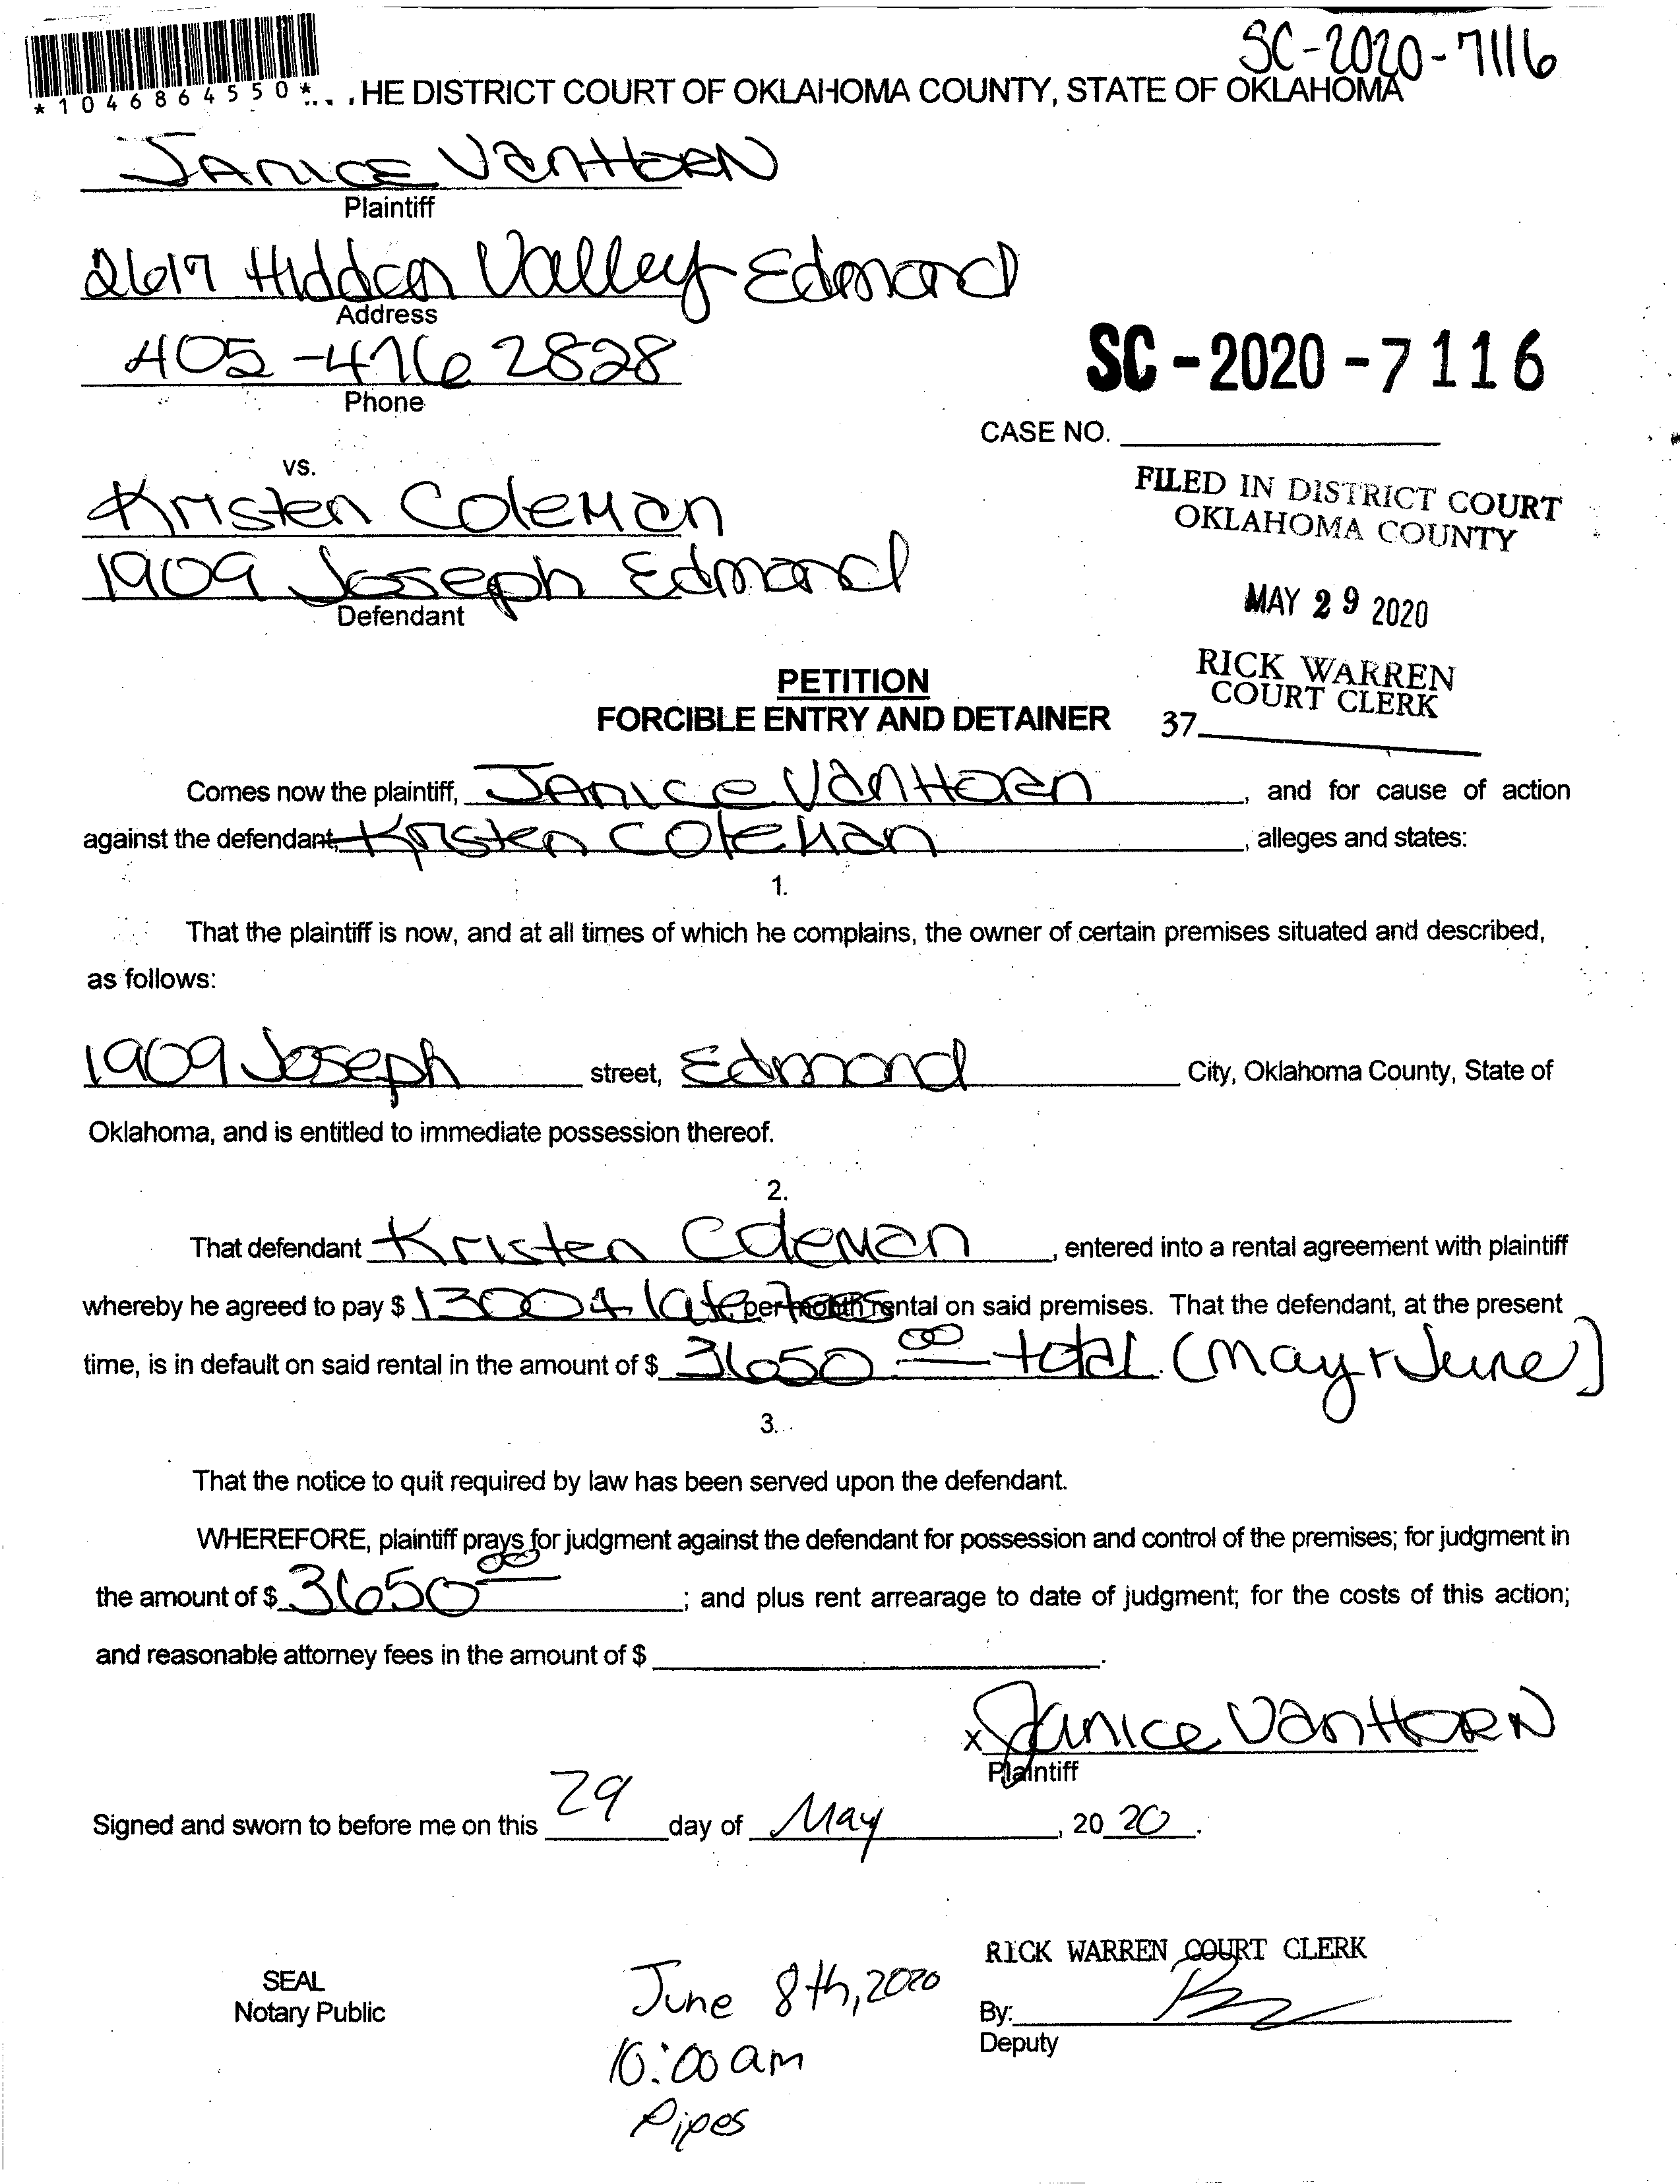 SC-2020-7116
*1046864550* HE DISTRICT COURT OF OKLAHOMA COUNTY, STATE OF OKLAHOMA
JANICE VanHORN
Plaintiff
2617 Hidden Valley Edmond
Address
405-416 2828
Phone
SC-2020-7116
CASE NO.
vs.
Kristen Coleman
1909 Joseph Edmond
Defendant
FILED IN DISTRICT COURT
OKLAHOMA COUNTY
MAY 29 2020
RICK WARREN
COURT CLERK
37
PETITION
FORCIBLE ENTRY AND DETAINER
Comes now the plaintiff, JANICE VanHorn, and for cause of action
against the defendant, Kristen Coleman, alleges and states:
1.
That the plaintiff is now, and at all times of which he complains, the owner of certain premises situated and described,
as follows:
1909 Joseph street, Edmond City, Oklahoma County, State of
Oklahoma, and is entitled to immediate possession thereof.
2.
That defendant Kristen Coleman, entered into a rental agreement with plaintiff
whereby he agreed to pay $ 1300 + late fees per month rental on said premises. That the defendant, at the present
time, is in default on said rental in the amount of $ 3650 00 total. (May + June)
3.
That the notice to quit required by law has been served upon the defendant.
WHEREFORE, plaintiff prays for judgment against the defendant for possession and control of the premises; for judgment in
the amount of $ 3650 00; and plus rent arrearage to date of judgment; for the costs of this action;
and reasonable attorney fees in the amount of $ .
x Janice VanHORN
Plaintiff
Signed and sworn to before me on this 29 day of May, 20 20.
SEAL
Notary Public
June 8th, 2020
10:00 am
Pipes
RICK WARREN COURT CLERK
By:
Deputy